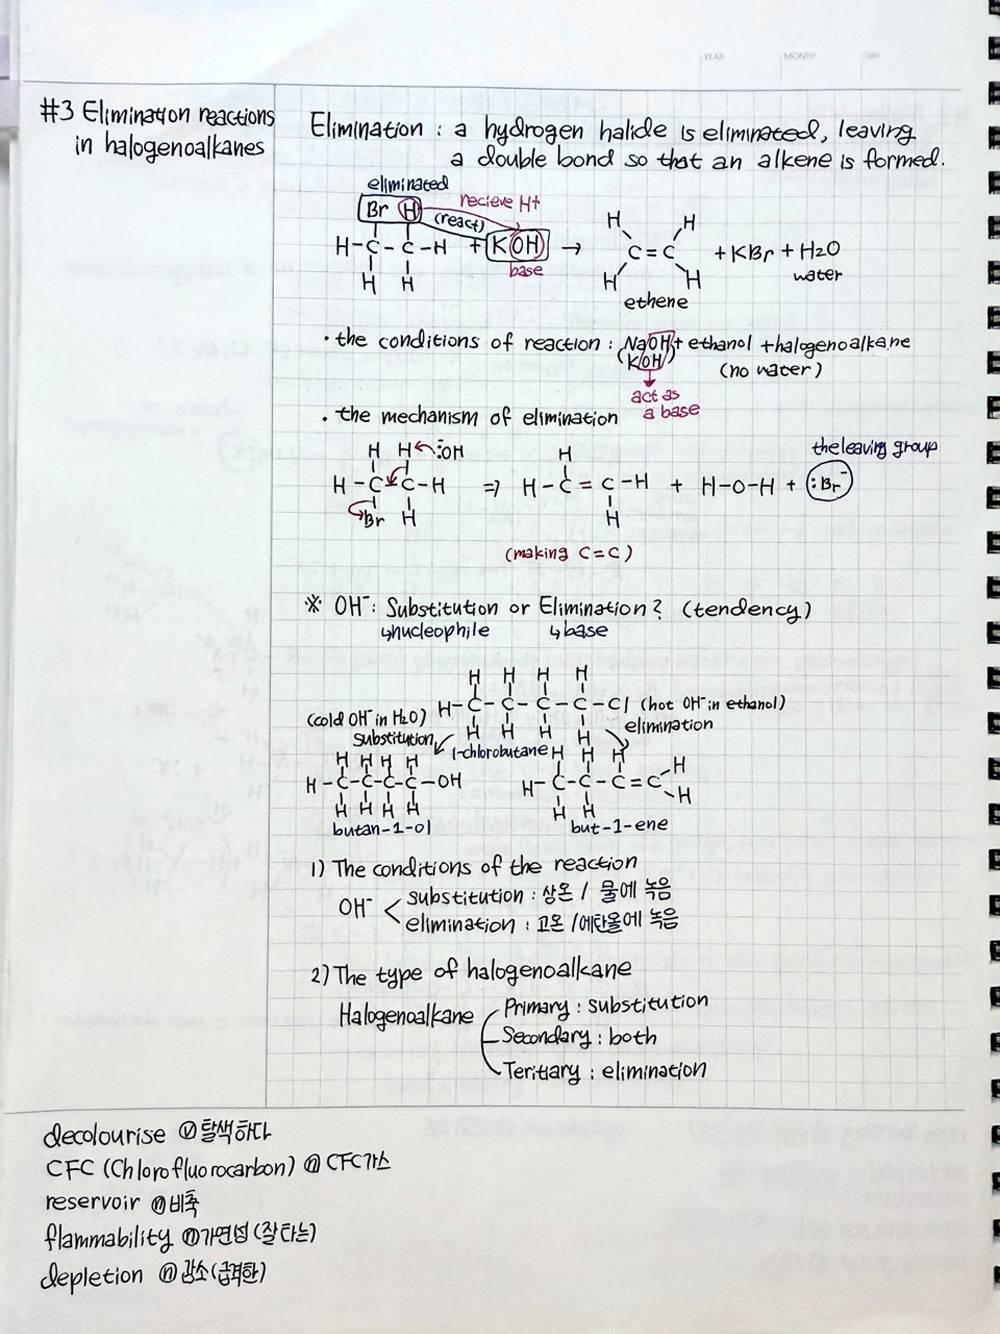 YEAR MONTH DAY
#3 Elimination reactions
in halogenoalkanes
Elimination : a hydrogen halide is eliminated, leaving
a double bond so that an alkene is formed.
eliminated
recieve H+
Br H
(react)
H-C-C-H + KOH → H H C=C H H + KBr + H2O
H H
base
water
ethene
· the conditions of reaction : NaOH + ethanol + halogenoalkane
(KOH)
(no water)
act as
a base
· the mechanism of elimination
the leaving group
H H :OH
H-C-C-H ⇒ H-C=C-H + H-O-H + :Br⁻
Br H
H
H
(making C=C)
※ OH⁻ : Substitution or Elimination? (tendency)
↳nucleophile ↳base
H H H H
H-C-C-C-C-Cl
H H H H
(cold OH⁻ in H2O)
substitution
(hot OH⁻ in ethanol)
elimination
1-chlorobutane
H H H H
H-C-C-C-C-OH
H H H H
butan-1-ol
H H H
H-C-C-C=C H H
H H
but-1-ene
1) The conditions of the reaction
OH⁻
substitution : 상온 / 물에 녹음
elimination : 고온 / 에탄올에 녹음
2) The type of halogenoalkane
Halogenoalkane
Primary : substitution
Secondary : both
Teritiary : elimination
decolourise ⓥ 탈색하다
CFC (Chlorofluorocarbon) ⓝ CFC가스
reservoir ⓝ 비축
flammability ⓝ 가연성 (잘 타는)
depletion ⓝ 감소 (급격한)